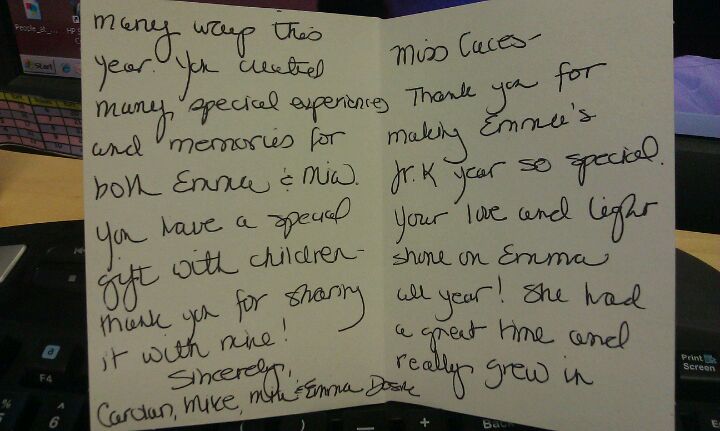 Miss Caces-
Thank you for
making Emma's
Jr. K year so special.
Your love and light
shone on Emma
all year! She had
a great time and
really grew in
many ways this
year. You created
many special experiences
and memories for
both Emma & Mia.
You have a special
gift with children-
thank you for sharing
it with mine!
Sincerely,
Mike, Mia & Emma
start
Print
Screen
F4
6
Back